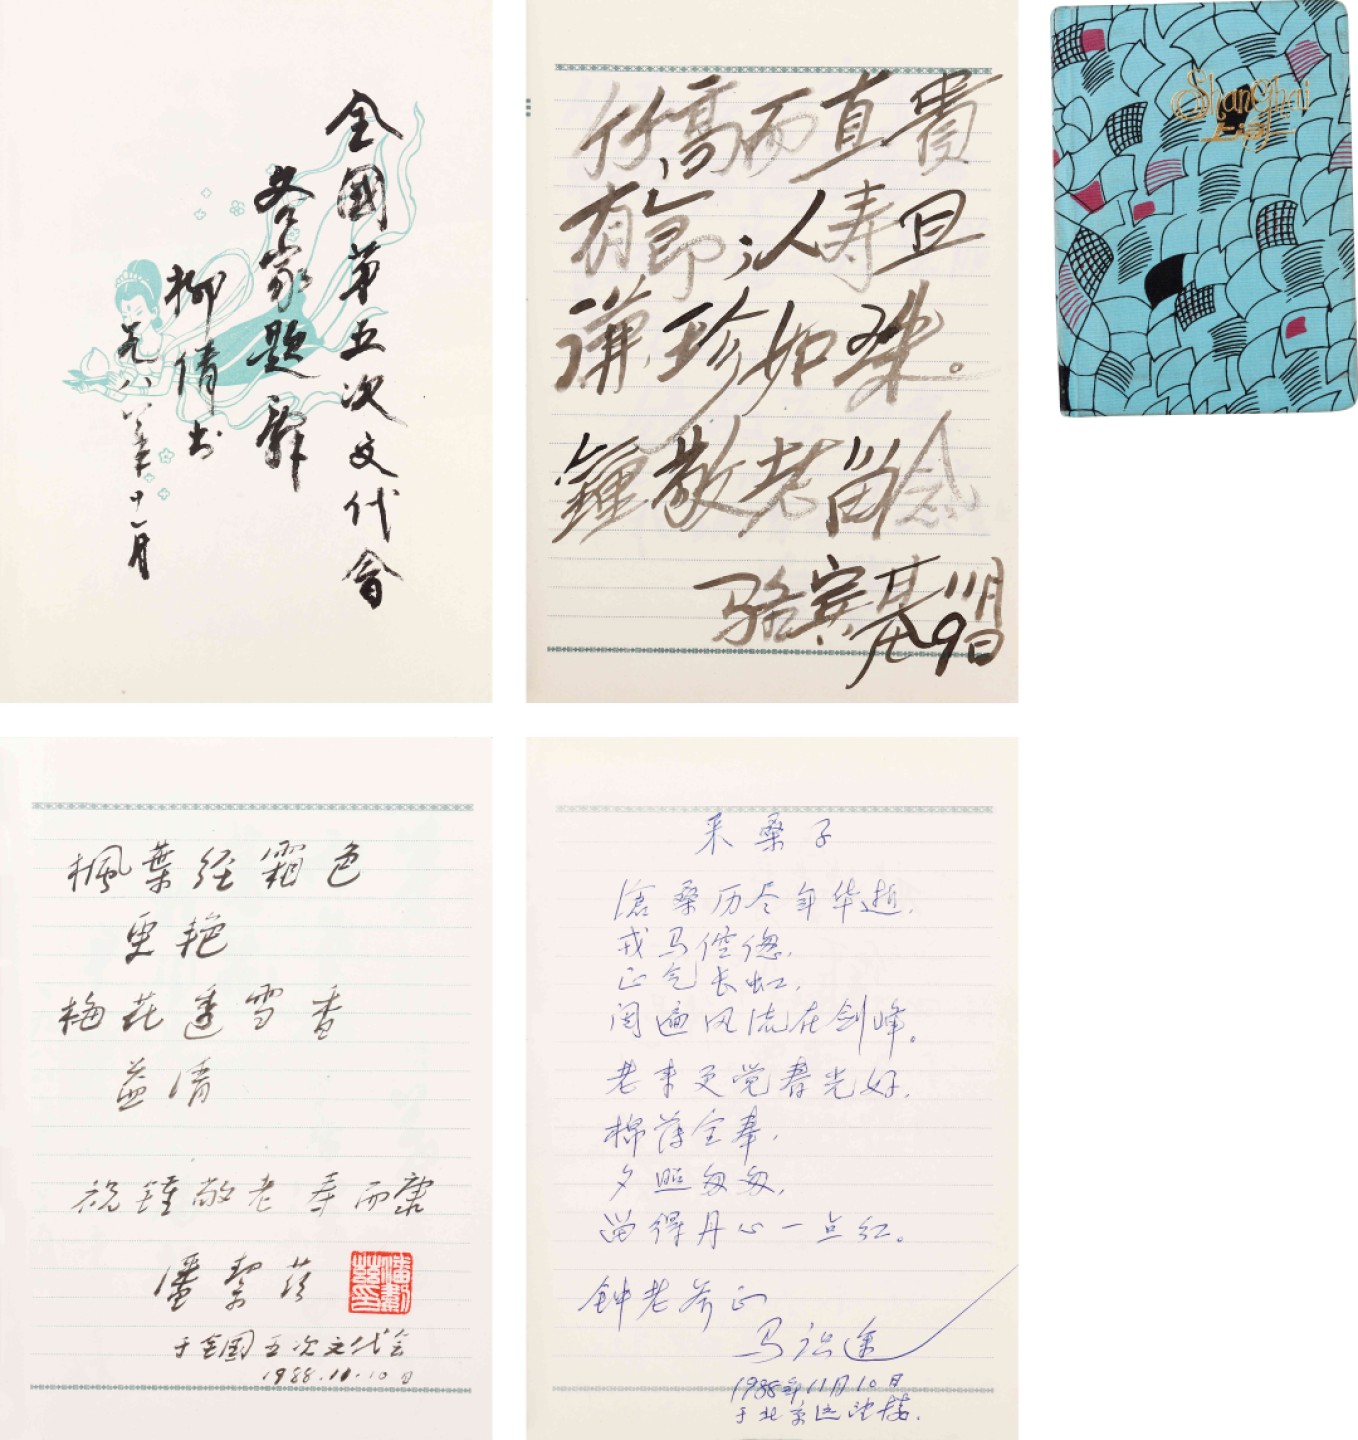 全國第五次文代會
各家題辭
柳倩书
一九八八年十一月
竹高而直貴
有節;人寿且
謙珍如珠。
鍾敬老留念
骆宾基11月
9日
Shanghai
上海
楓葉经霜色
更艳
梅花透雪香
益清
祝鍾敬老寿而康
潘絜兹
于全国五次文代会
1988.11.10日
采桑子
沧桑历尽年华逝,
戎马倥偬,
正气长虹,
阅遍风流在剑峰。
老来更觉春光好,
棉薄全奉,
夕照匆匆,
留得丹心一点红。
钟老斧正
马识途
1988年11月10日
于北京远望楼.